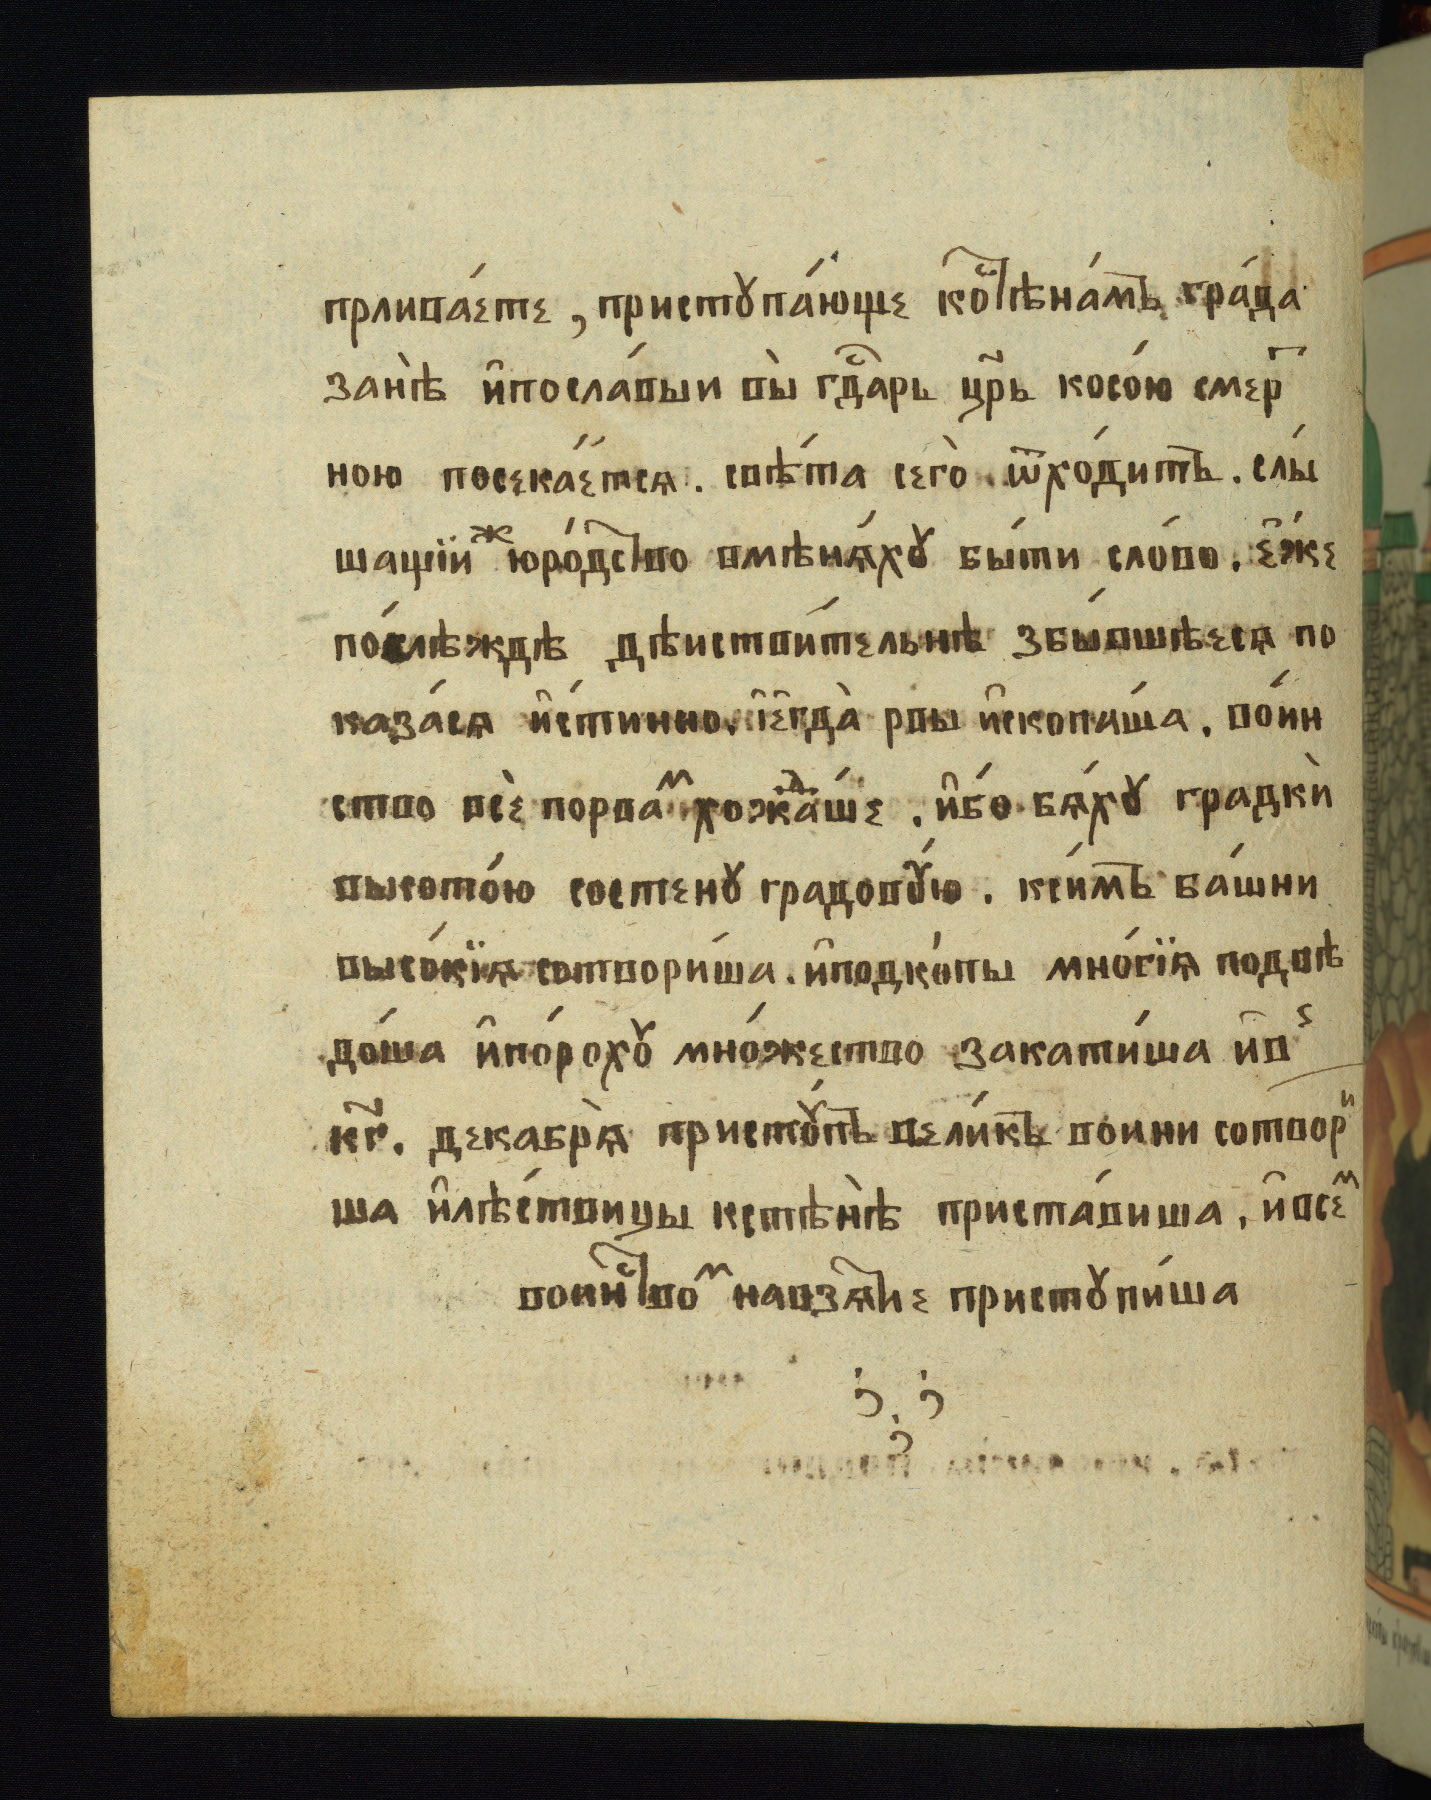 прлива́ете, пристꙋпа́юще ко̑стѣна́мъ гра́да
зане̑ѣ и҆посла́выи вы̀ гдⷭ҇арь цр҃ь косо́ю смер
ною посека́ется. свѣ́та сего̀ ѿхо́дитъ. слы́
шащїи́ж юро́дство вмѣнѧ́хꙋ бы́ти сло́во. е҆́же
по́слѣждѣ дѣиствви́тельнѣ збы́вшѣесѧ по
каза́сѧ и҆́стинно. і҆е҆гда̀ рвы и҆скопа́ша. во́ин
ство всѐ порва́м хожда́ше. и҆́бо бѧ́хꙋ градки̇̀
высото́ю состенꙋ градовꙋ́ю. кси́мъ ба́шни
высо́кїѧ сотвори́ша. и҆подко́пы мно́гїѧ подвѣ
до́ша и҆по́рохꙋ мно́жество закати́ша и҆вѕ
кг҃. декабрѧ̀ пристꙋ́пъ вели́къ воини сотвори
ша и҆лѣ́ствицы кстѣнѣ̀ приста́виша, и҆всем
воинством навзѧ́тие пристꙋпи́ша